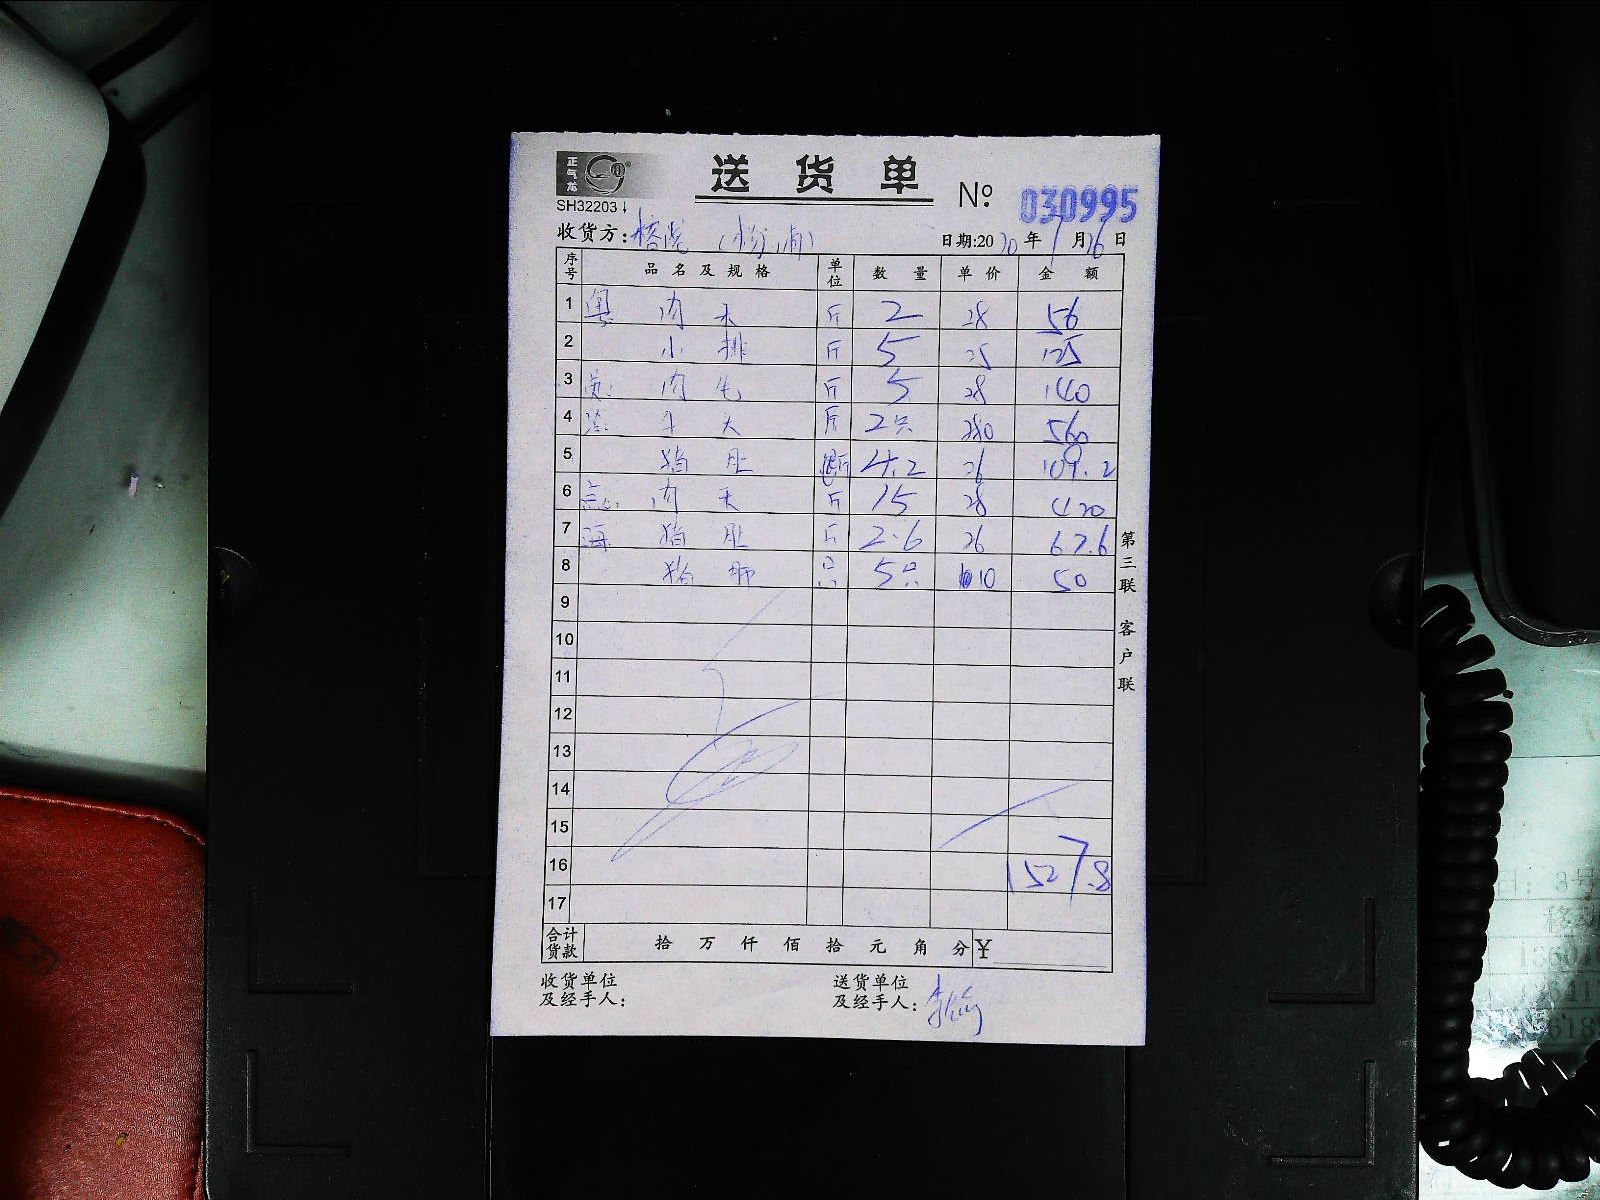 正气龙
送货单
SH32203
№ 030995
收货方: 日期:2020年1月26日
序号 品名及规格 单位 数量 单价 金额
1 粤 肉 天 斤 2 28 56
2 小排 斤 5 25 125
3 肉 斤 5 28 140
4 斤 2只 280 560
5 猪肚 斤 4.2 26 109.2
6 点心 肉 天 斤 15 28 420
7 海 猪肚 斤 2.6 26 67.6
8 猪 只 5只 10 50
9
10
11
12
13
14
15
16 1527.8
17
合计货款 拾万仟佰拾元角分 ¥
收货单位及经手人: 送货单位及经手人: 李
第三联 客户联